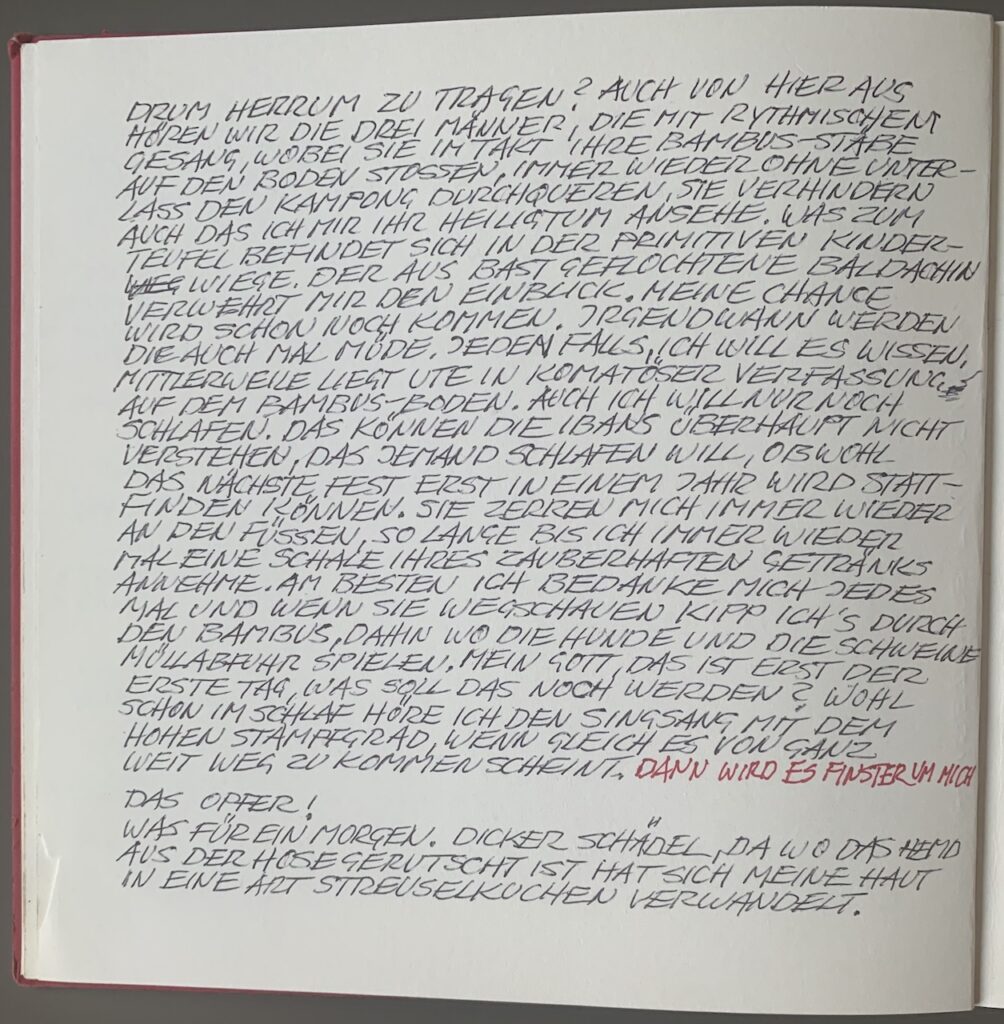 DRUM HERRUM ZU TRAGEN? AUCH VON HIER AUS
HÖREN WIR DIE DREI MÄNNER, DIE MIT RYTHMISCHEM
GESANG, WOBEI SIE IM TAKT IHRE BAMBUS-STÄBE
AUF DEN BODEN STOSSEN, IMMER WIEDER OHNE UNTER-
LASS DEN KAMPONG DURCHQUEREN, SIE VERHINDERN
AUCH DAS ICH MIR IHR HEILIGTUM ANSEHE. WAS ZUM
TEUFEL BEFINDET SICH IN DER PRIMITIVEN KINDER-
WIEGE. DER AUS BAST GEFLOCHTENE BALDACHIN
VERWEHRT MIR DEN EINBLICK. MEINE CHANCE
WIRD SCHON NOCH KOMMEN. IRGENDWANN WERDEN
DIE AUCH MAL MÜDE. JEDEN FALLS, ICH WILL ES WISSEN.
MITTLERWEILE LIEGT UTE IN KOMATÖSER VERFASSUNG
AUF DEM BAMBUS-BODEN. AUCH ICH WILL NUR NOCH
SCHLAFEN. DAS KÖNNEN DIE IBANS ÜBERHAUPT NICHT
VERSTEHEN, DAS JEMAND SCHLAFEN WILL, OBWOHL
DAS NÄCHSTE FEST ERST IN EINEM JAHR WIRD STATT-
FINDEN KÖNNEN. SIE ZERREN MICH IMMER WIEDER
AN DEN FÜSSEN, SO LANGE BIS ICH IMMER WIEDER
MAL EINE SCHALE IHRES ZAUBERHAFTEN GETRÄNKS
ANNEHME. AM BESTEN ICH BEDANKE MICH JEDES
MAL UND WENN SIE WEGSCHAUEN KIPP ICH'S DURCH
DEN BAMBUS, DAHIN WO DIE HUNDE UND DIE SCHWEINE
MÜLLABFUHR SPIELEN. MEIN GOTT, DAS IST ERST DER
ERSTE TAG, WAS SOLL DAS NOCH WERDEN? WOHL
SCHON IM SCHLAF HÖRE ICH DEN SINGSANG MIT DEM
HOHEN STAMPFGRAD, WENN GLEICH ES VON GANZ
WEIT WEG ZU KOMMEN SCHEINT. DANN WIRD ES FINSTER UM MICH
DAS OPFER!
WAS FÜR EIN MORGEN. DICKER SCHÄDEL, DA WO DAS HEMD
AUS DER HOSE GERUTSCHT IST HAT SICH MEINE HAUT
IN EINE ART STREUSELKUCHEN VERWANDELT.